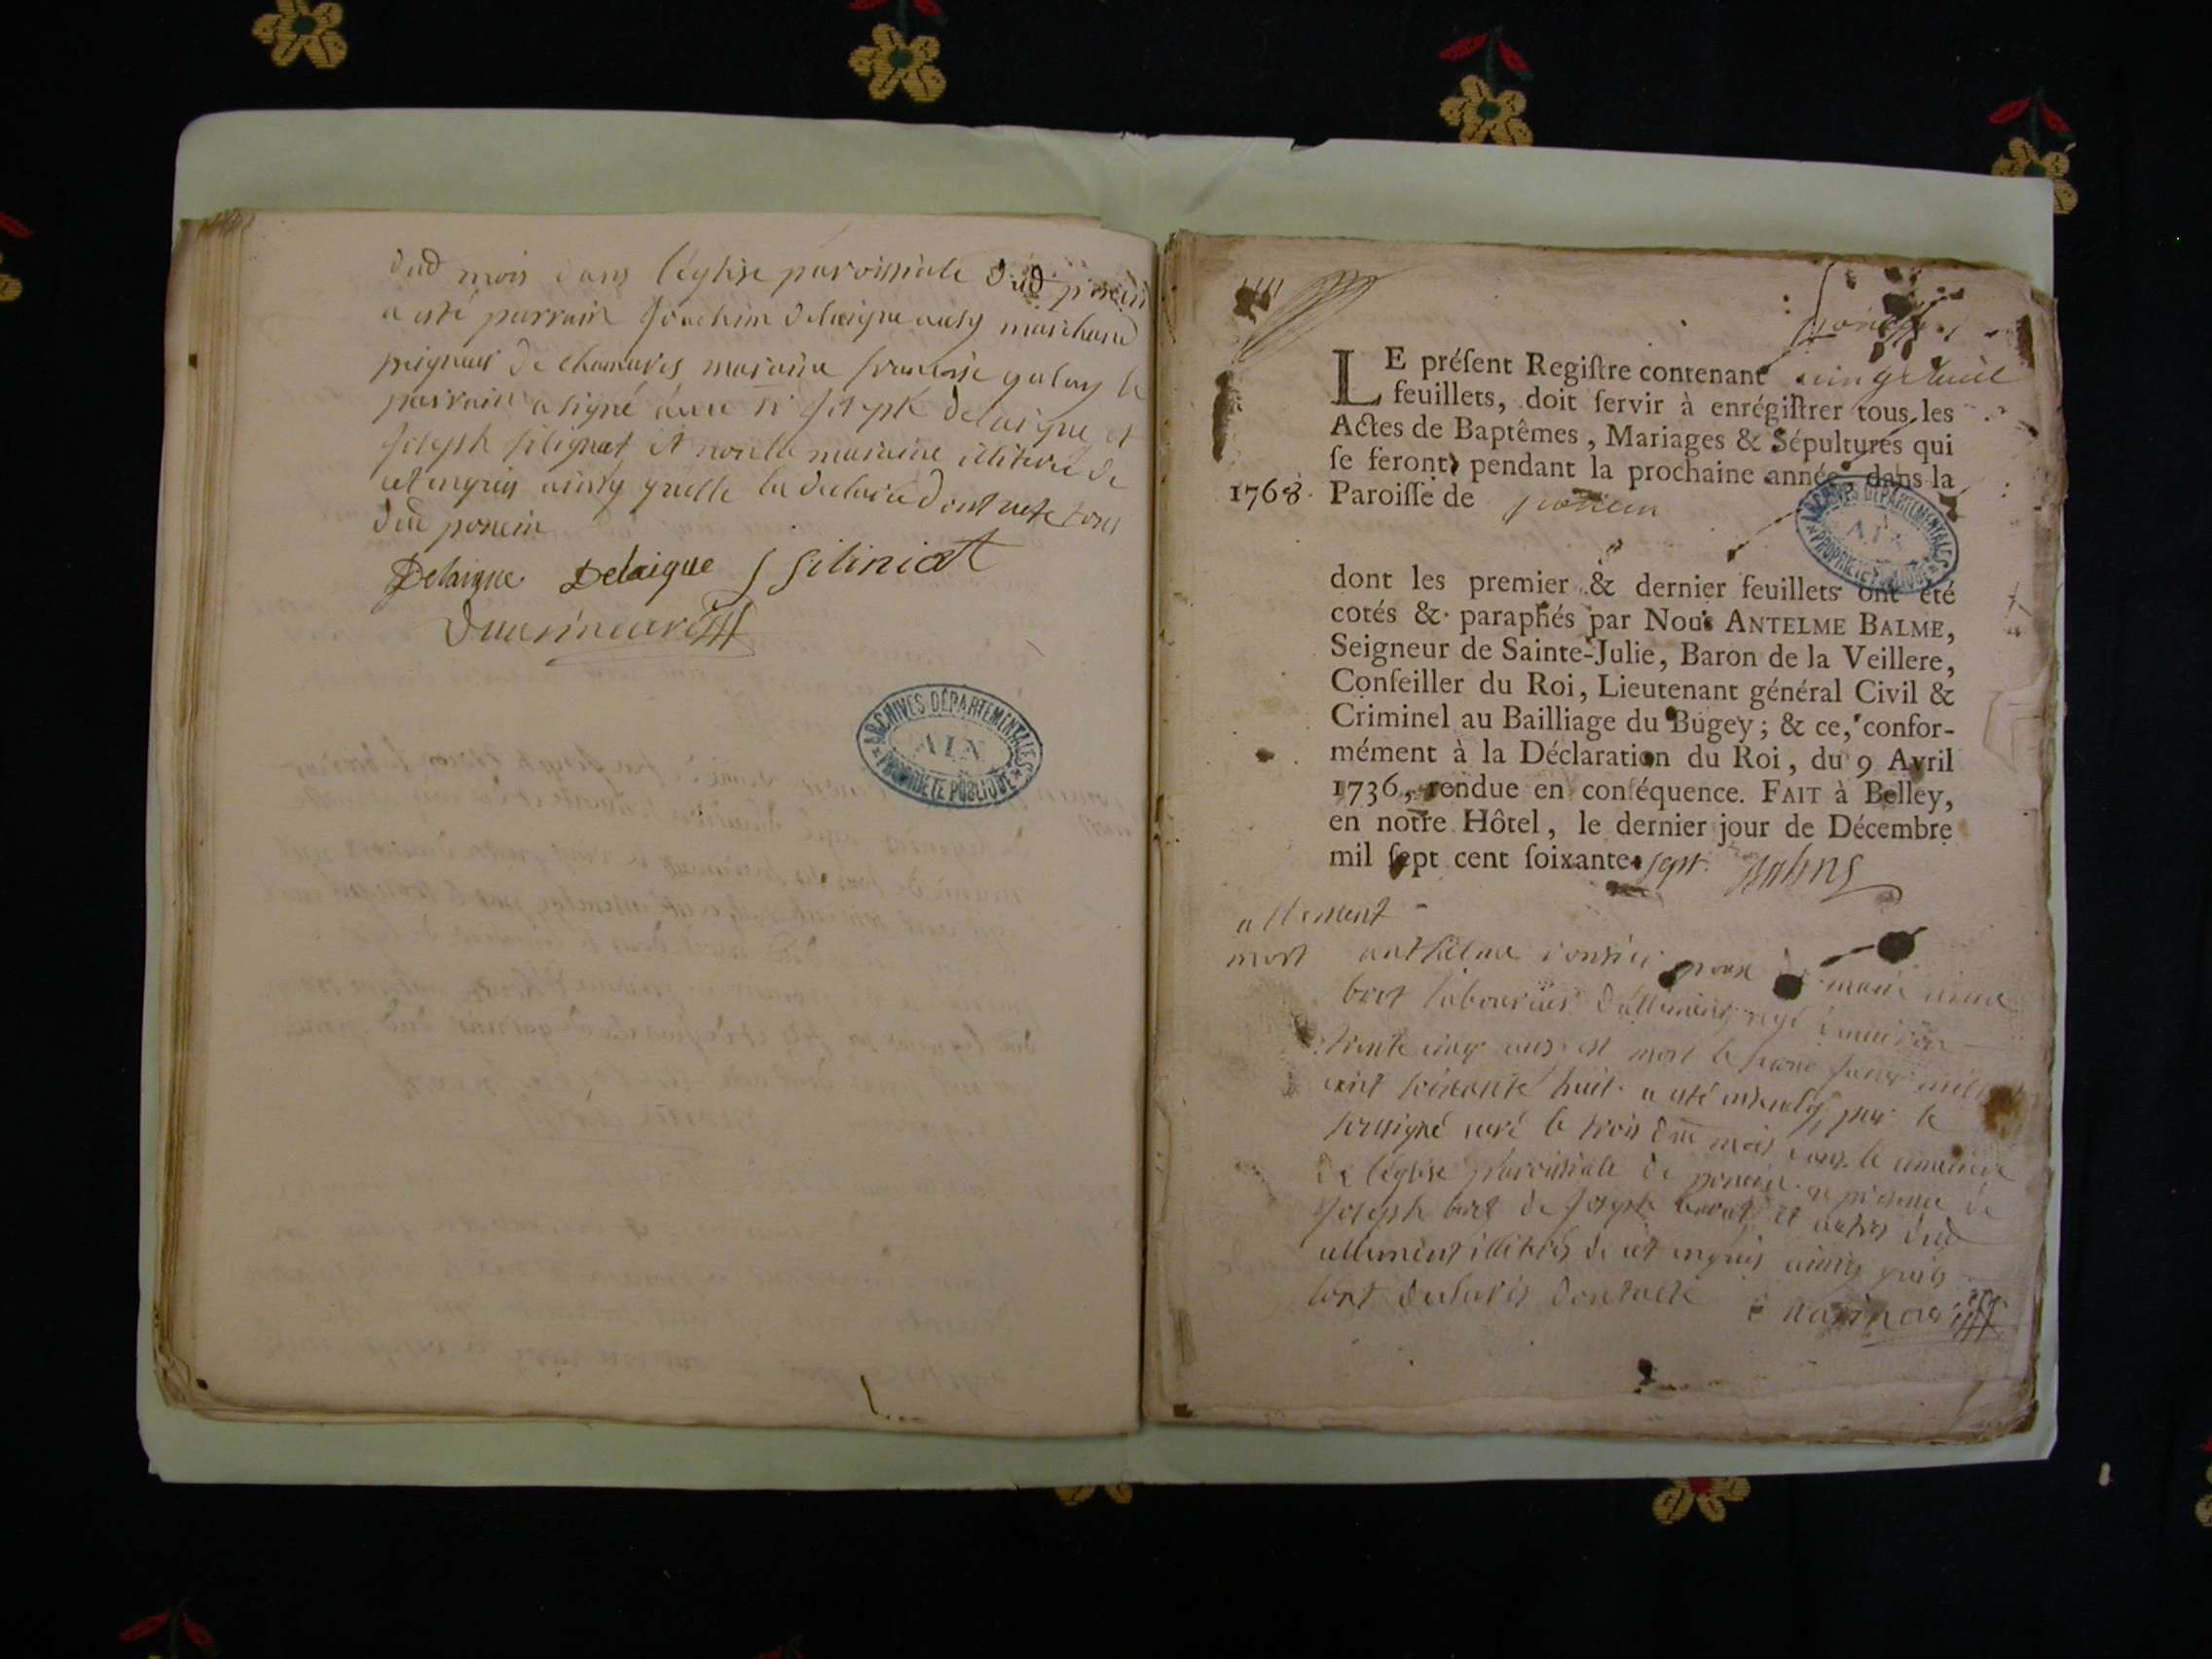 dud mois dans l'église paroissiale dud poncin
a esté parrain Joachim delaigue aussy marchand
peigneur de chanvres maraine francoise
parrain a signé avec sr Joseph delaigue et
Joseph silignat et non la maraine illiterée de
cet enquis ainsy quelle la declaré dont acte
dud poncin
Delaigue Delaigue J Siliniat
ARCHIVES DÉPARTEMENTALES
AIN
PROPRIÉTÉ PUBLIQUE
LE préſent Regiſtre contenant
feuillets, doit ſervir à enrégiſtrer tous les
Actes de Baptêmes, Mariages & Sépultures qui
ſe feront pendant la prochaine année, dans la
1768. Paroiſſe de poncin
ARCHIVES DÉPARTEMENTALES
AIN
PROPRIÉTÉ PUBLIQUE
dont les premier & dernier feuillets ont été
cotés & paraphés par Nous ANTELME BALME,
Seigneur de Sainte-Julie, Baron de la Veillere,
Conſeiller du Roi, Lieutenant général Civil &
Criminel au Bailliage du Bugey; & ce, confor-
mément à la Déclaration du Roi, du 9 Avril
1736, rendue en conſéquence. FAIT à Belley,
en notre Hôtel, le dernier jour de Décembre
mil ſept cent ſoixante sept. Balme
allement
mort anthelme marie
bret laboureur d'allement agé environ
trente cinq ans est mort le mil
cent soixante huit a esté par le
soussigné curé le trois dud mois dans le cimetiere
de l'église paroissiale de poncin en presence de
Joseph bret de Joseph et autres dud
allement illiterés de cet enquis ainsy quils
l'ont declarés dont acte